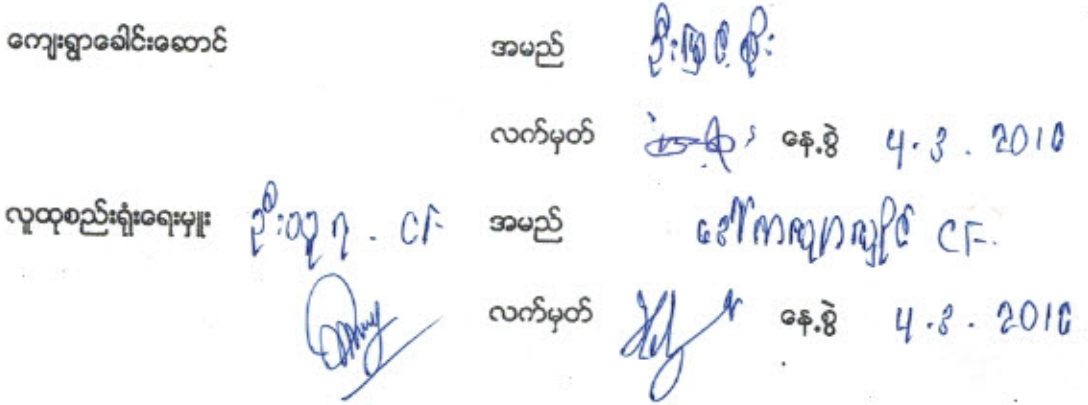 ကျေးရွာခေါင်းဆောင် အမည် ဦးမြင့်စိုး
လက်မှတ် နေ့စွဲ 4.3.2018
လူထုစည်းရုံးရေးမှူး ဦးသူရ . CF အမည် CF.
လက်မှတ် နေ့စွဲ 4.3.2018